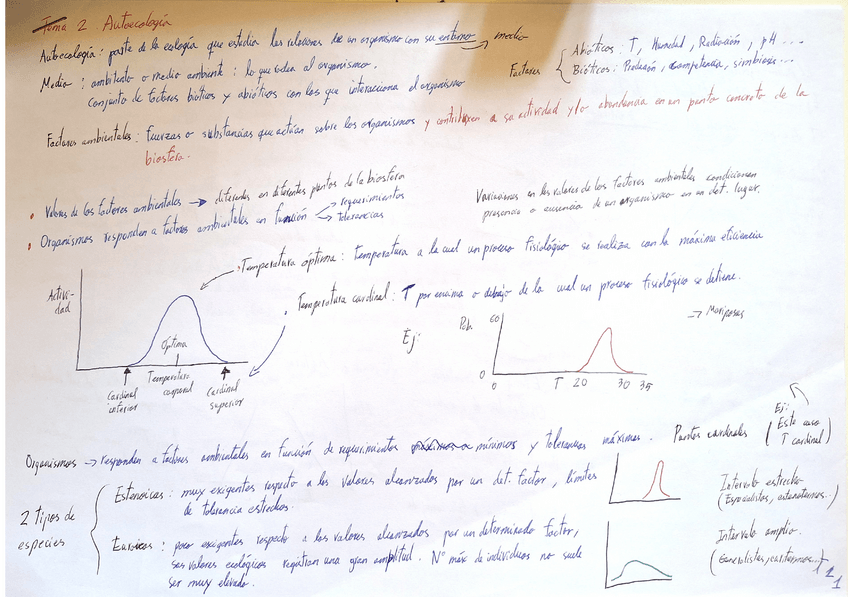 Tema 2. Autoecología
Autoecología: parte de la ecología que estudia las relaciones de un organismo con su entorno → medio
Medio: ambiente o medio ambiente: lo que rodea al organismo.
Conjunto de factores bióticos y abióticos con los que interacciona el organismo
Factores
Abióticos: T, Humedad, Radiación, pH ...
Bióticos: Predación, competencia, simbiosis...
Factores ambientales: fuerzas o substancias que actúan sobre los organismos y contribuyen a su actividad y/o abundancia en un punto concreto de la
biosfera.
• Valores de los factores ambientales → diferentes en diferentes puntos de la biosfera
• Organismos responden a factores ambientales en función
requerimientos
tolerancias
Variaciones en los valores de los factores ambientales condicionan
presencia o ausencia de un organismo en un det. lugar.
• Temperatura óptima: Temperatura a la cual un proceso fisiológico se realiza con la máxima eficiencia
• Temperatura cardinal: T por encima o debajo de la cual un proceso fisiológico se detiene.
Activi-
dad
Óptima
Cardinal
inferior
Temperatura
corporal
Cardinal
superior
Ej:
Pob.
60
0
0
T
20
30
35
→ Mariposas
Ej:
(Este caso
T cardinal)
Organismos → responden a factores ambientales en función de requerimientos mínimos y tolerancias máximas.
Puntos cardinales
2 tipos de
especies
Estenoicas: muy exigentes respecto a los valores alcanzados por un det. factor, límites
de tolerancia estrechos.
Intervalo estrecho
(Especialistas, estenotermos...)
Euroicas: poco exigentes respecto a los valores alcanzados por un determinado factor,
sus valores ecológicos registran una gran amplitud. Nº máx de individuos no suele
ser muy elevado.
Intervalo amplio.
(Generalistas, euritermos...)
1
2
1